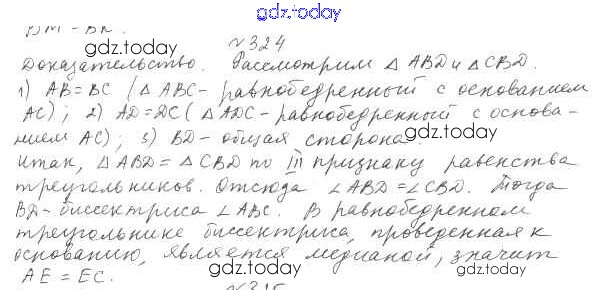 gdz.today
ВМ = ВК.
№324
gdz.today
Доказательство. Рассмотрим △ ABD и △ CBD.
1) AB = BC (△ ABC - равнобедренный с основанием
AC); 2) AD = DC (△ ADC - равнобедренный с основа-
нием AC); 3) BD - общая сторона.
gdz.today
Итак, △ ABD = △ CBD по III признаку равенства
треугольников. Отсюда ∠ ABD = ∠ CBD. Тогда
BD - биссектриса ∠ ABC. В равнобедренном
gdz.today
треугольнике биссектриса, проведенная к
основанию, является медианой, значит
AE = EC.
gdz.today
gdz.today
№325